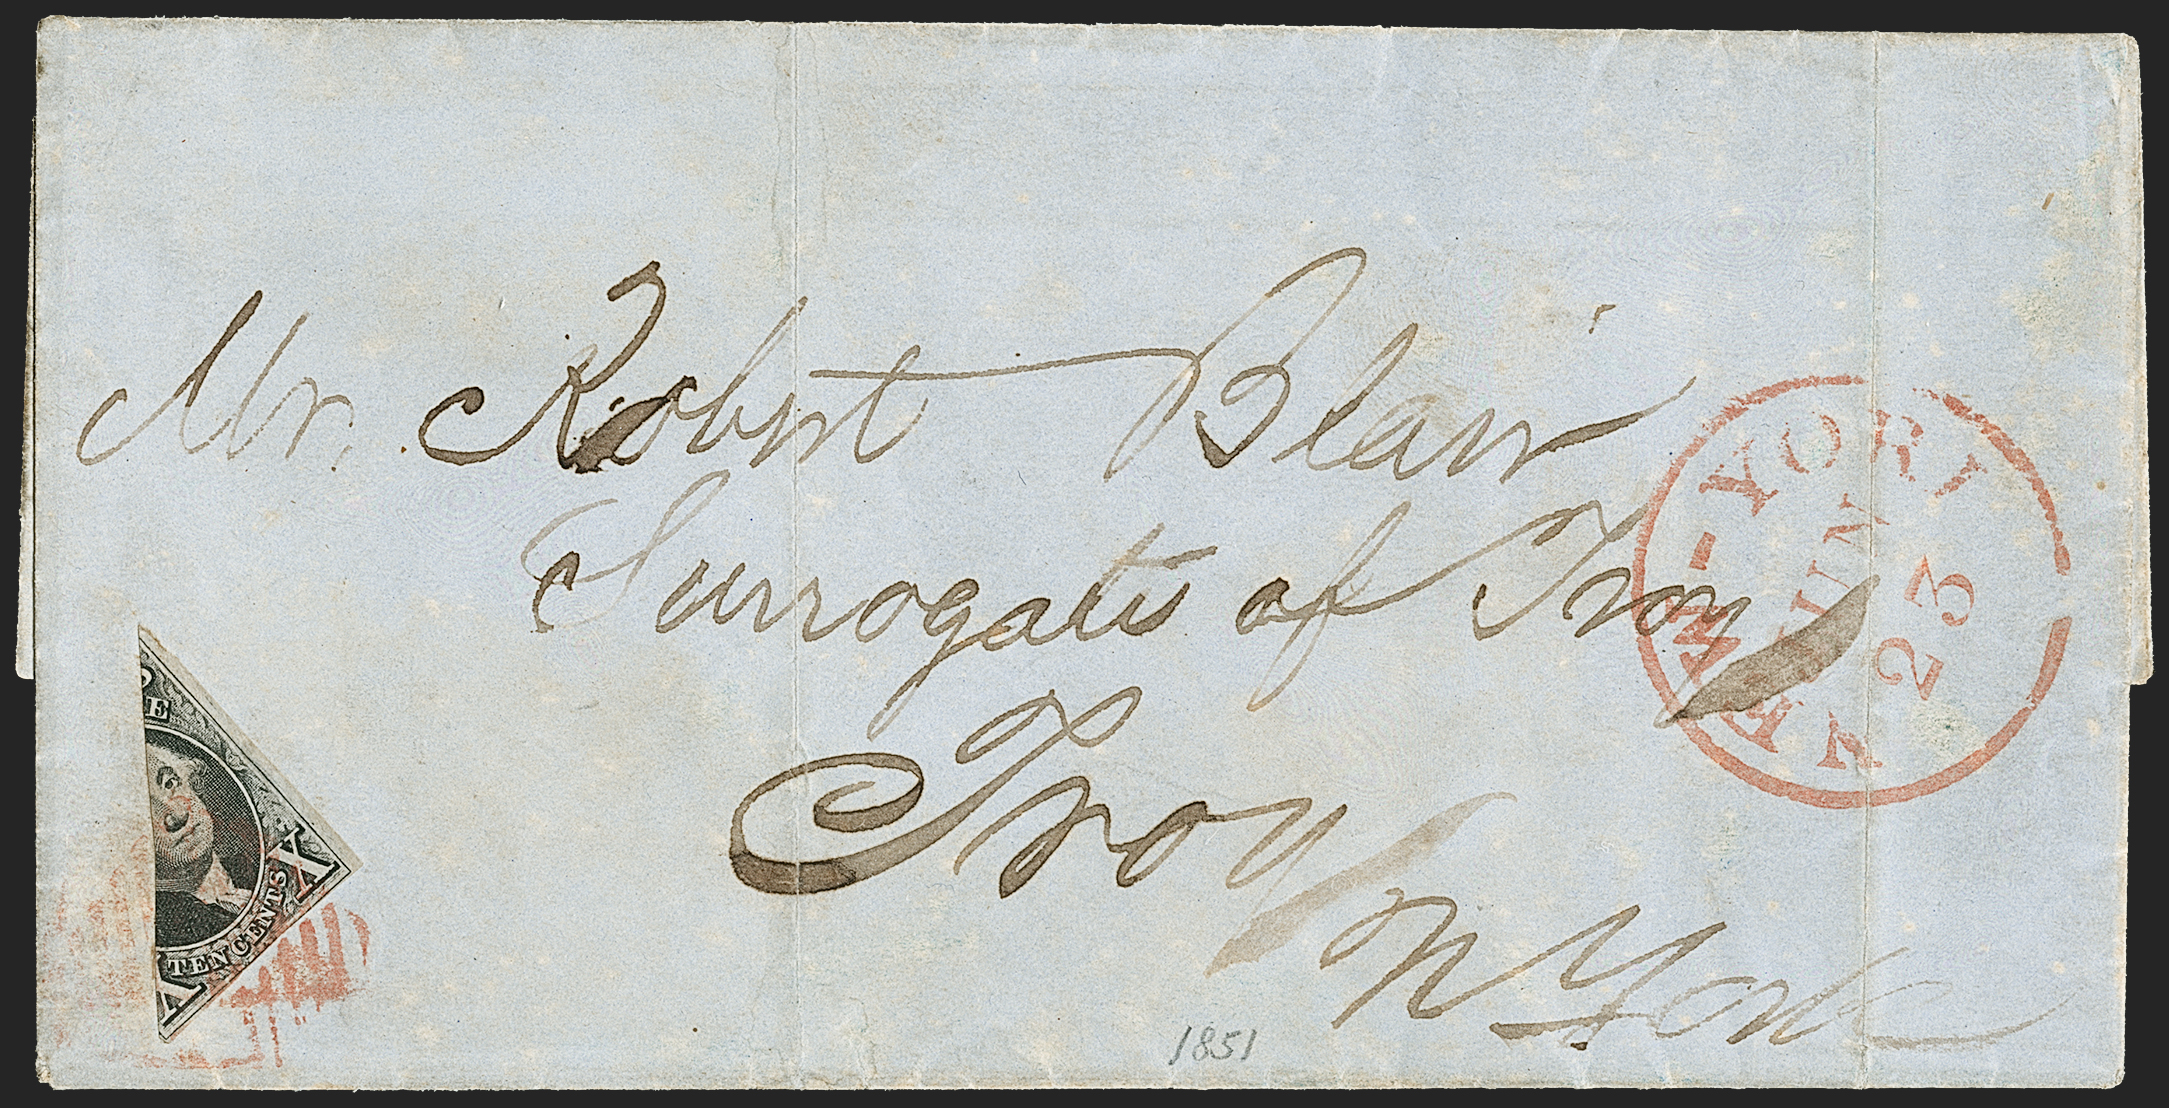 Mr. Robert Blair
Surrogate of Troy
Troy
N York
NEW-YORK
JUN
23
E
X TEN CENTS X
1851